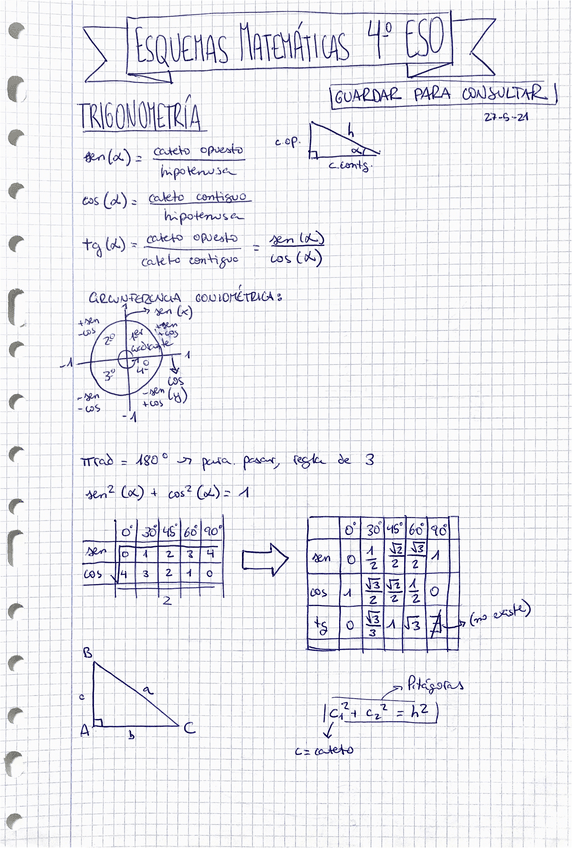 ESQUEMAS MATEMÁTICAS 4º ESO
GUARDAR PARA CONSULTAR
27-5-21
TRIGONOMETRÍA
sen(α) = cateto opuesto / hipotenusa
c.op. h α c.contg.
cos(α) = cateto contiguo / hipotenusa
tg(α) = cateto opuesto / cateto contiguo = sen(α) / cos(α)
CIRCUNFERENCIA GONIOMÉTRICA:
1 → sen(x)
+sen -cos 2º 1er cuadrante +sen +cos
-1 1
3º 4º cos (y)
-sen -cos -sen +cos
-1
πrad = 180° → para pasar, regla de 3
sen²(α) + cos²(α) = 1
0° 30° 45° 60° 90°
sen 0 1 2 3 4
cos 4 3 2 1 0
2
0° 30° 45° 60° 90°
sen 0 1/2 √2/2 √3/2 1
cos 1 √3/2 √2/2 1/2 0
tg 0 √3/3 1 √3 ∄ → (no existe)
B
c a
A b C
Pitágoras
c₁² + c₂² = h²
c = cateto